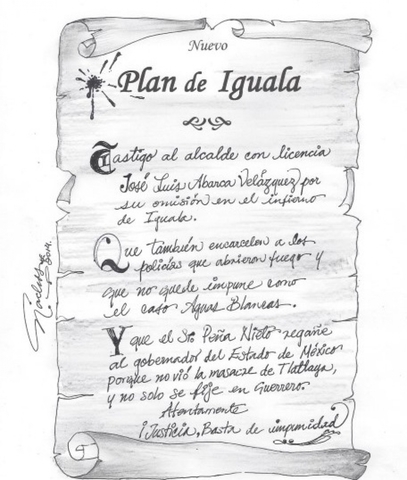 Nuevo
Plan de Iguala
Castigo al alcalde con licencia
José Luis Abarca Velázquez por
su omisión en el infierno
de Iguala.
Que también encarcelen a los
policías que abrieron fuego y
que no quede impune como
el caso Aguas Blancas.
Y que el Sr Peña Nieto regañe
al gobernador del Estado de México
porque no vió la masacre de Tlatlaya,
y no solo se fije en Guerrero.
Atentamente
¡Justicia, Basta de impunidad!
2014.